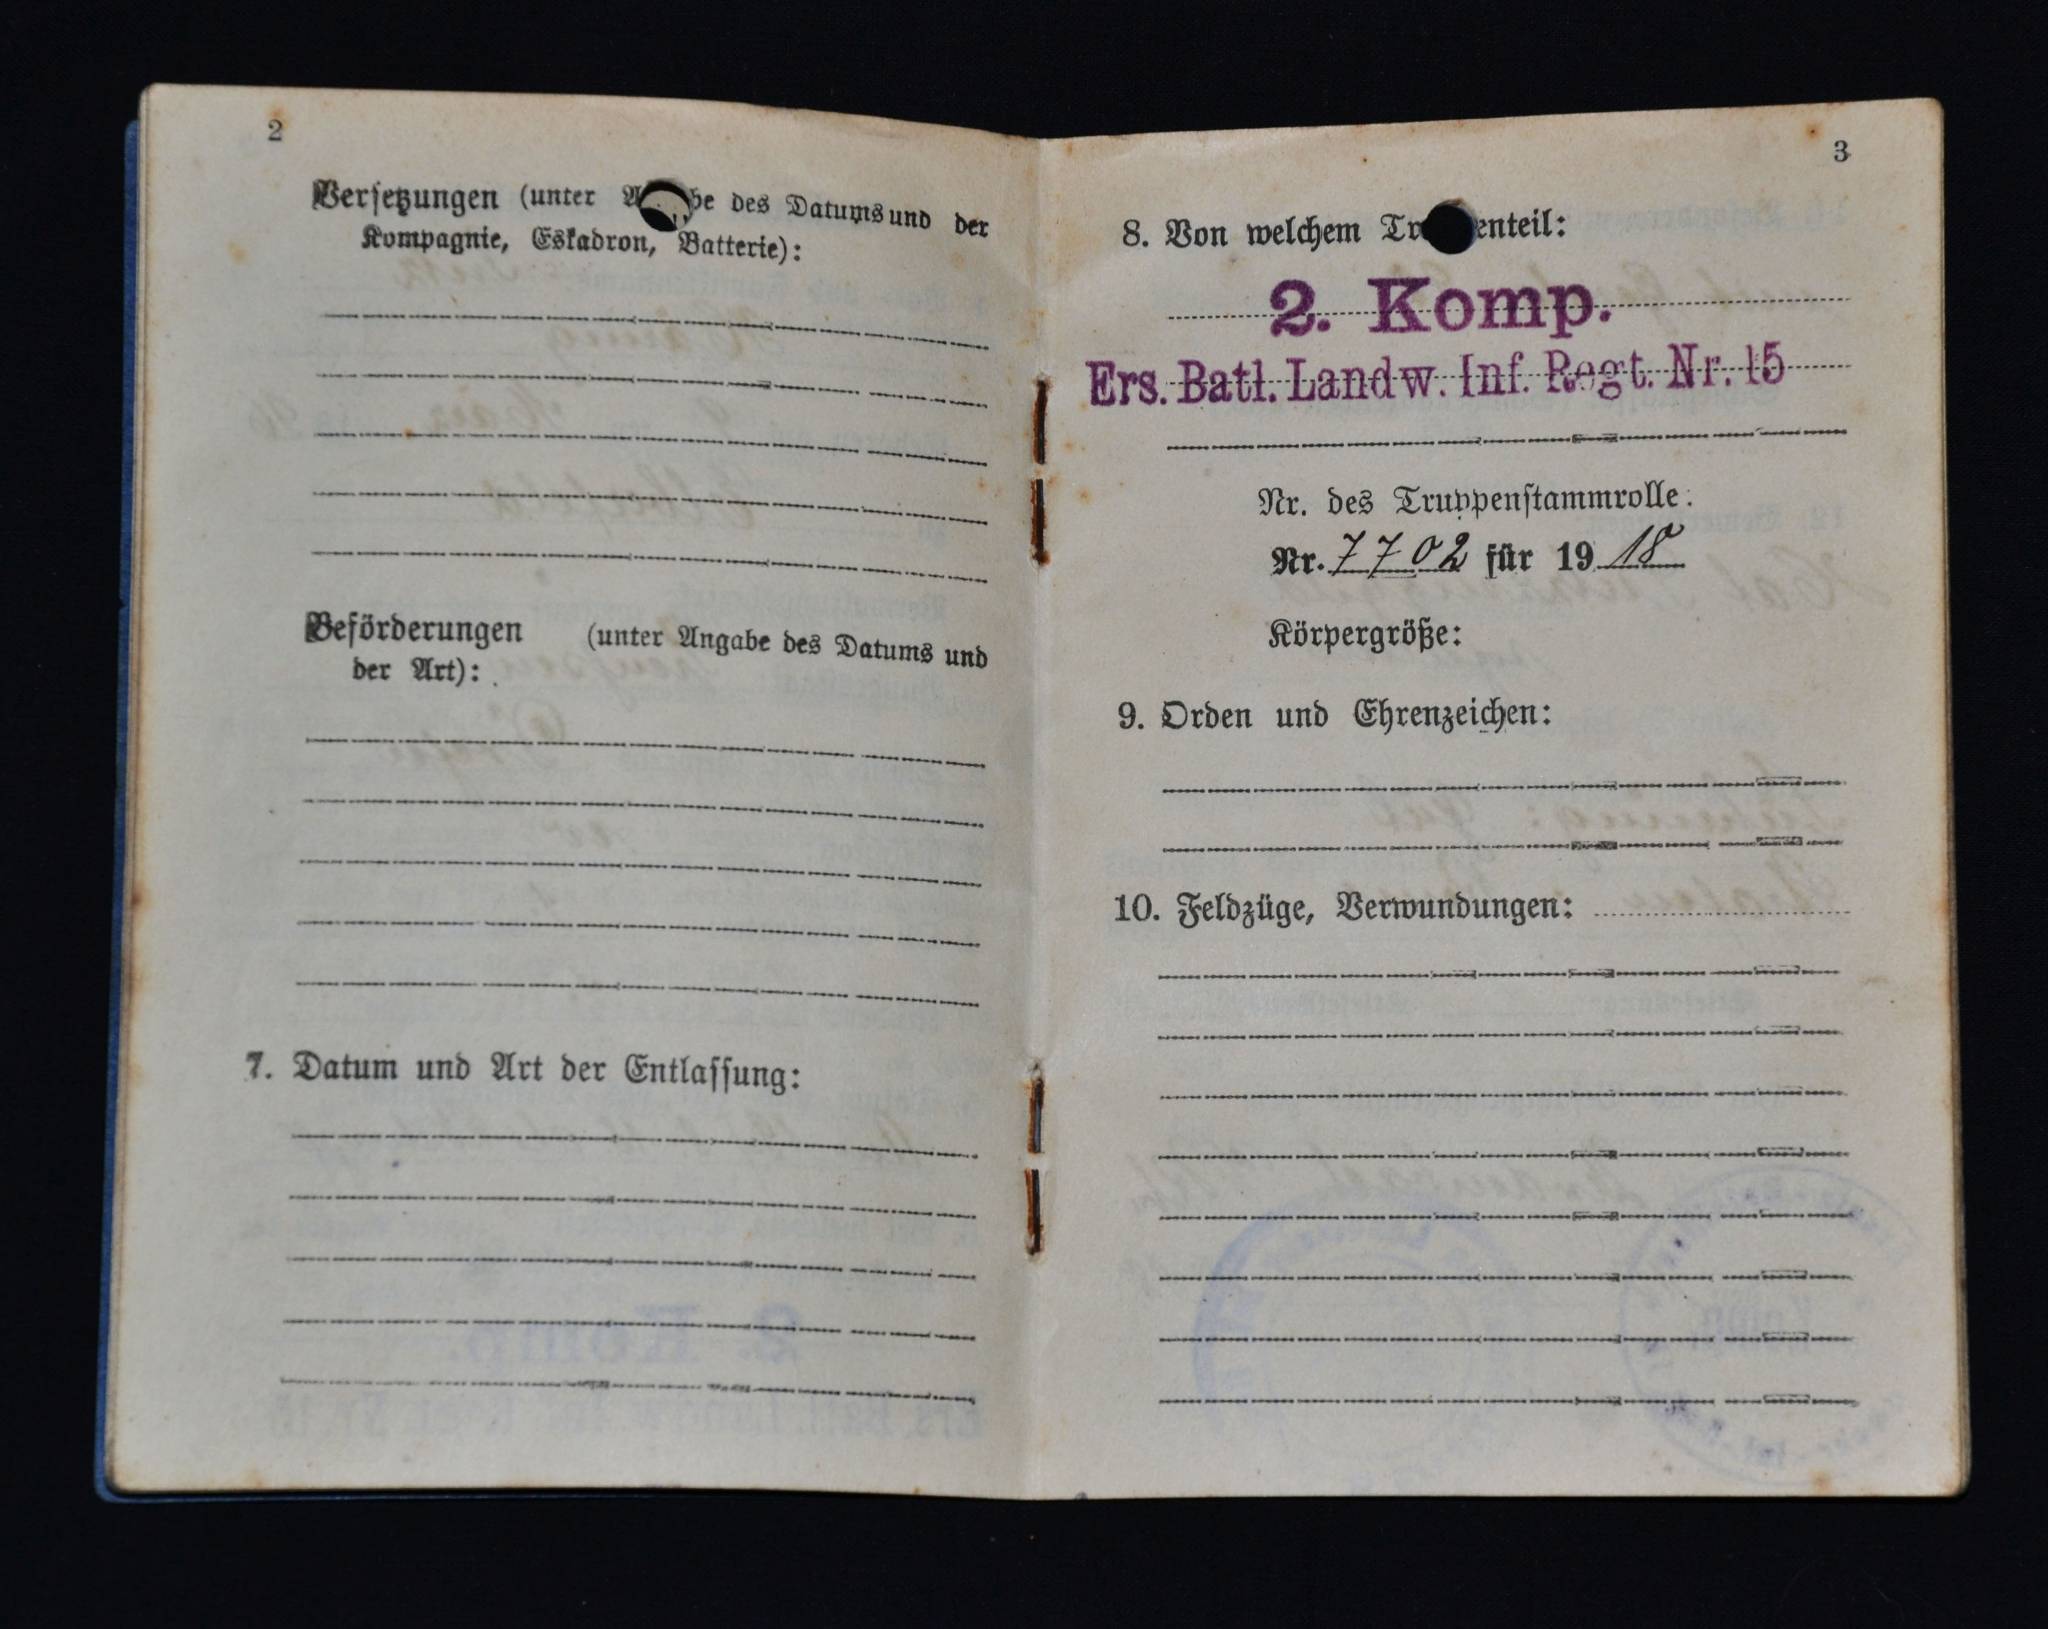 2
Versetzungen (unter A be des Datums und der
Kompagnie, Eskadron, Batterie):
Beförderungen (unter Angabe des Datums und
der Art):
7. Datum und Art der Entlassung:
3
8. Von welchem Tr enteil:
2. Komp.
Ers. Batl. Landw. Inf. Regt. Nr. 15
Nr. des Truppenstammrolle:
Nr. 7702 für 19 18
Körpergröße:
9. Orden und Ehrenzeichen:
10. Feldzüge, Verwundungen: